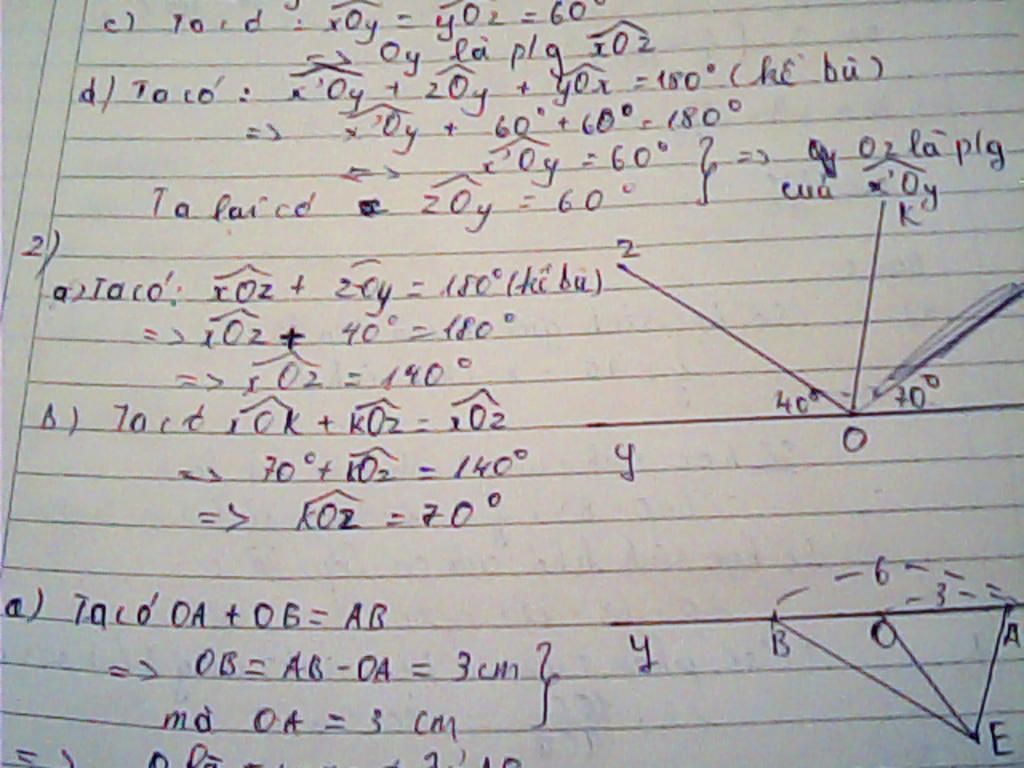 c) Ta có : xOy = yOz = 60°
=> Oy là plg xOz
d) Ta có : x'Oy + zOy + yOx = 180° (kề bù)
=> x'Oy + 60° + 60° = 180°
<=> x'Oy = 60° } => Oz là plg
Ta lại có zOy = 60° của x'Oy
2)
a) Ta có : xOz + zOy = 180° (kề bù)
=> xOz + 40° = 180°
=> xOz = 140°
b) Ta có xOk + kOz = xOz
=> 70° + kOz = 140°
=> kOz = 70°
z
K
40°
70°
y
O
a) Ta có OA + OB = AB
=> OB = AB - OA = 3 cm }
mà OA = 3 cm
=>
6
3
y
B
O
A
E